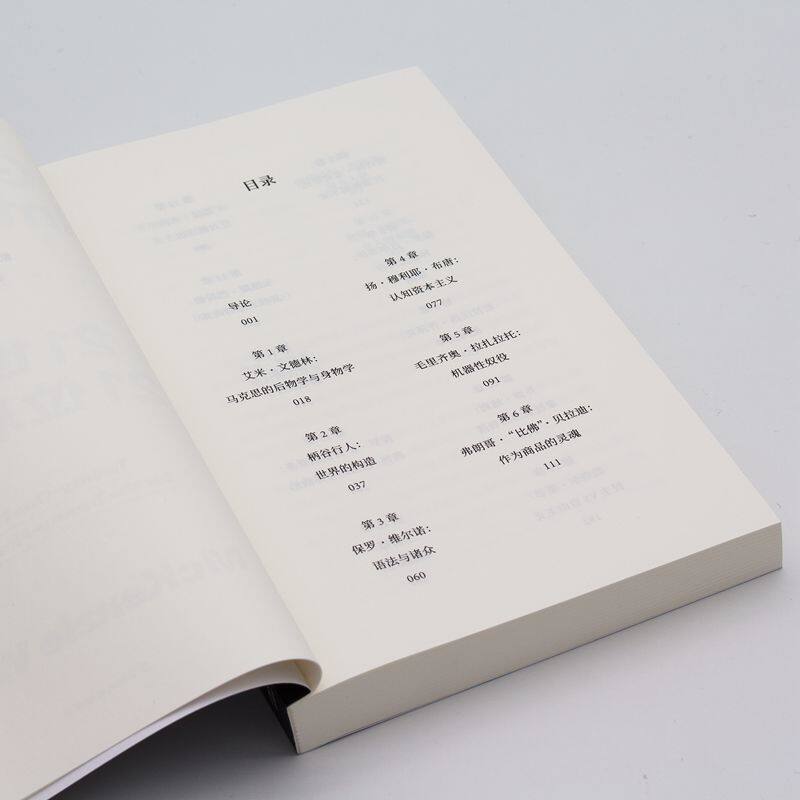 目录
导论
001
第1章
艾米·文德林:
马克思的后物学与身物学
018
第2章
柄谷行人:
世界的构造
037
第3章
保罗·维尔诺:
语法与诸众
060
第4章
扬·穆利耶·布唐:
认知资本主义
077
第5章
毛里齐奥·拉扎拉托:
机器性奴役
091
第6章
弗朗哥·“比佛”·贝拉迪:
作为商品的灵魂
111